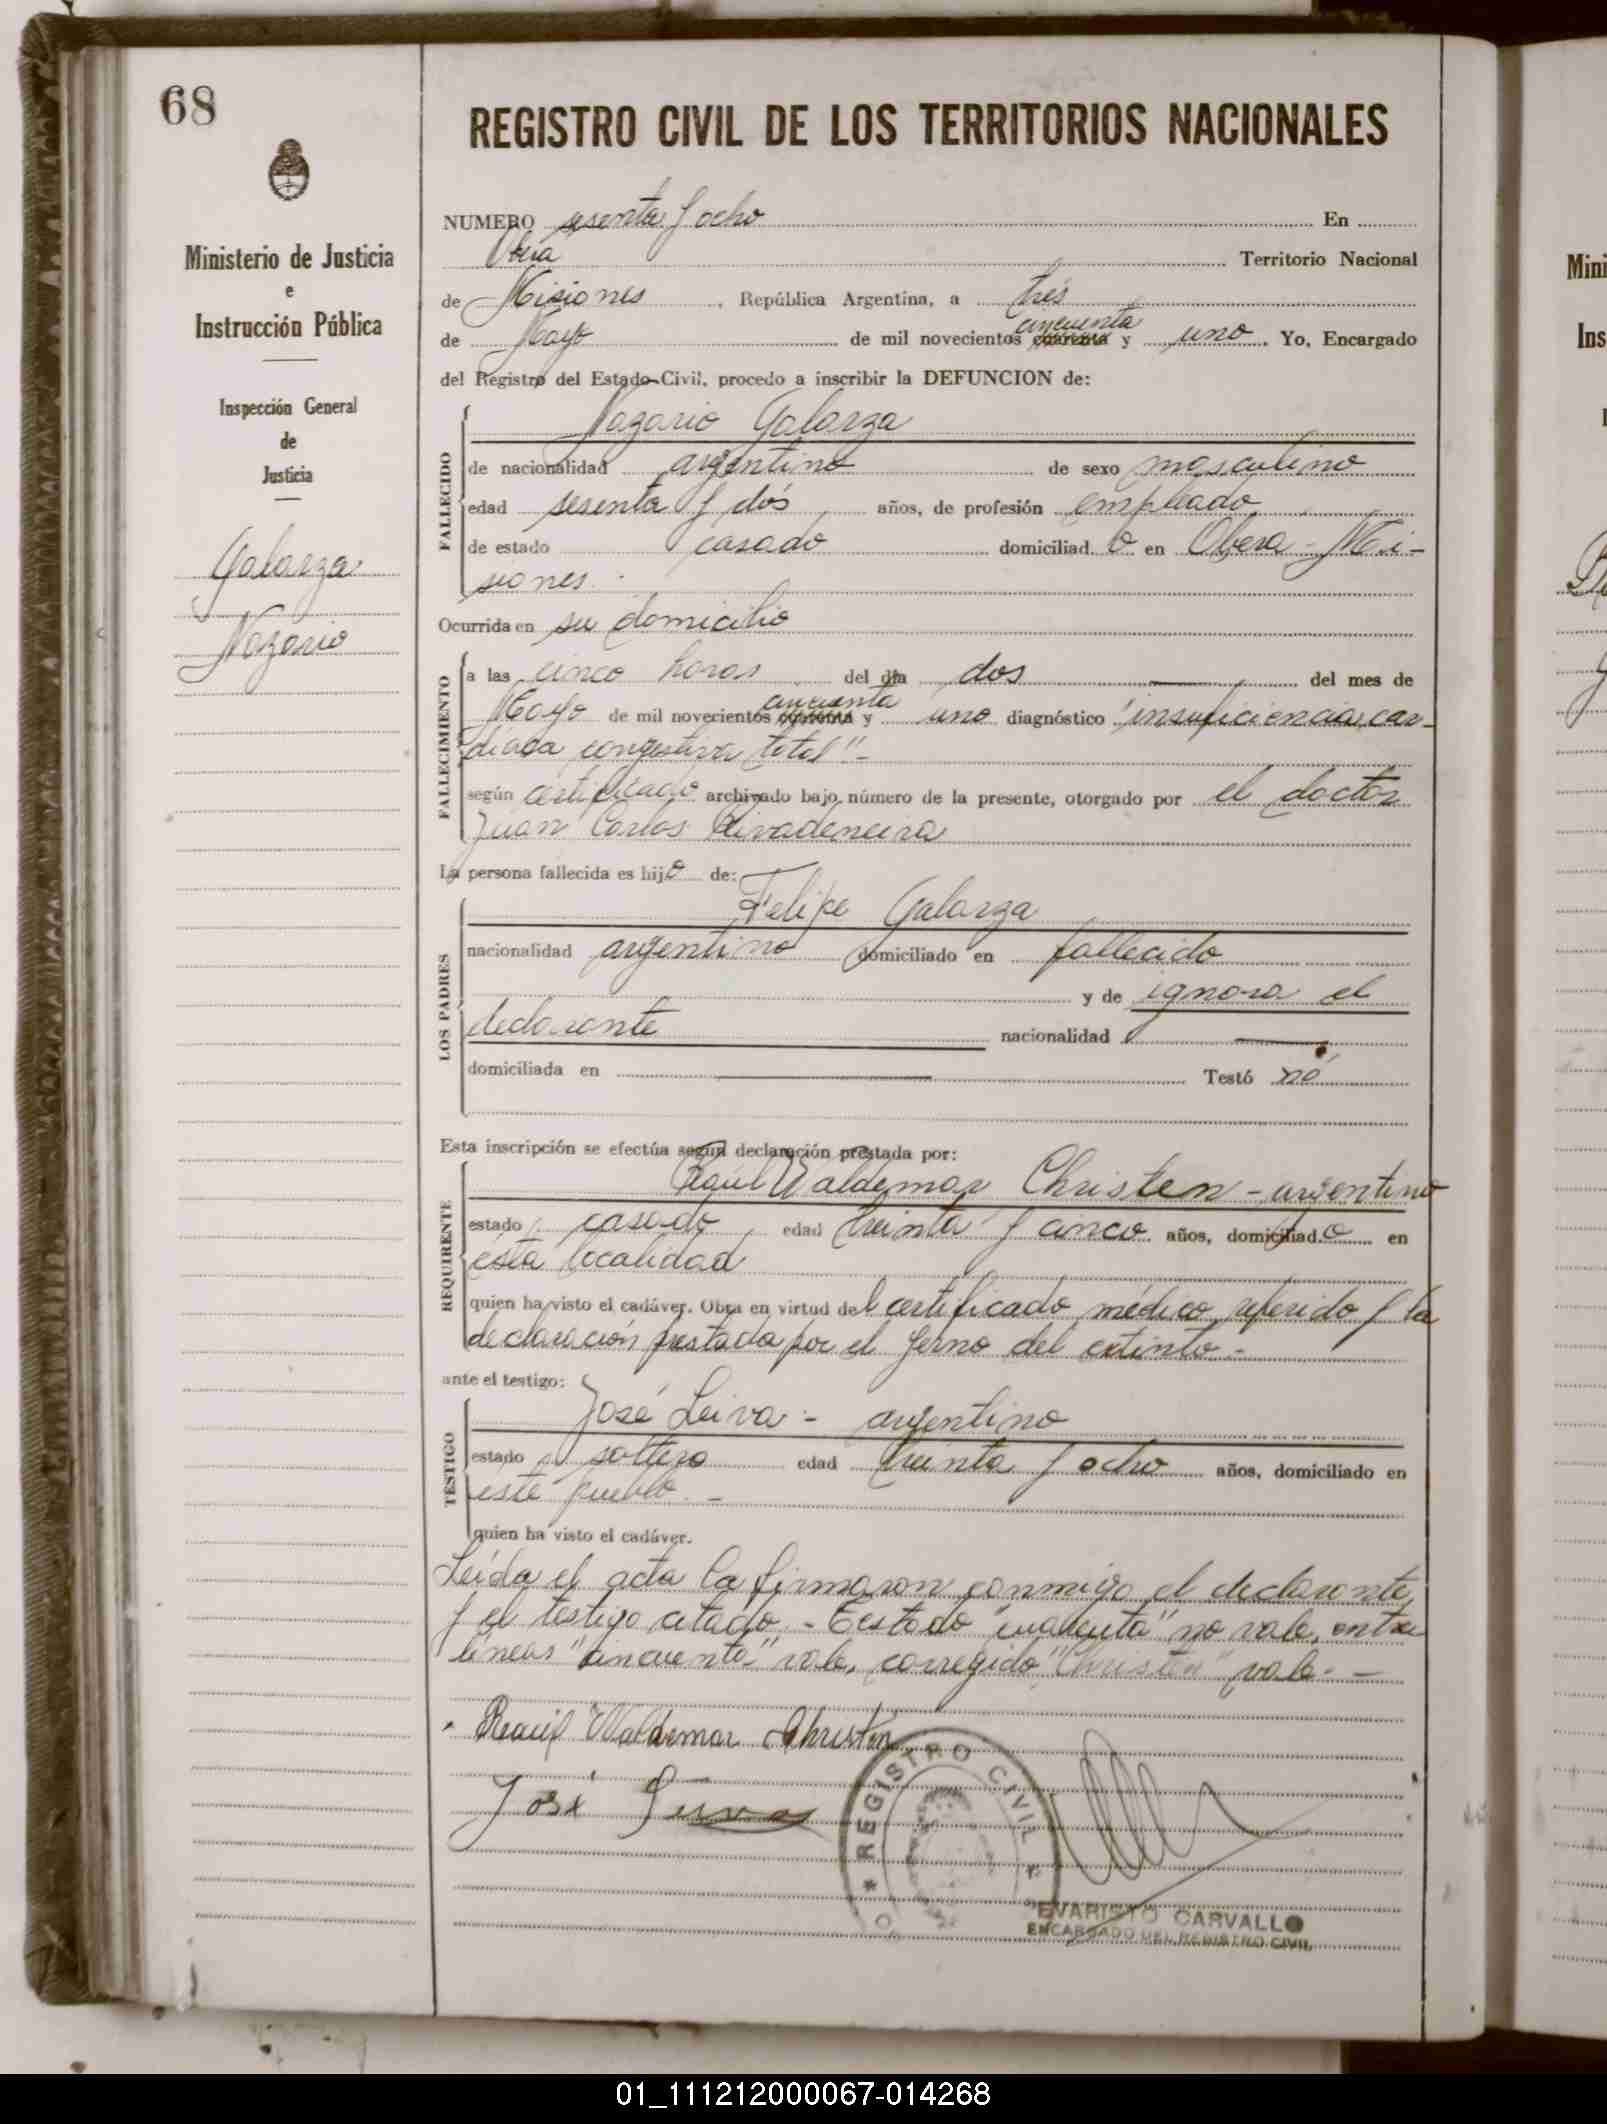 68
Ministerio de Justicia
e
Instrucción Pública
Inspección General
de
Justicia
Galarza
Nazario
REGISTRO CIVIL DE LOS TERRITORIOS NACIONALES
NUMERO sesenta y ocho En
Oberá Territorio Nacional
de Misiones, República Argentina, a trés
de Mayo de mil novecientos cincuenta cuarenta y uno. Yo, Encargado
del Registro del Estado Civil, procedo a inscribir la DEFUNCION de:
FALLECIDO
Nazario Galarza
de nacionalidad argentino de sexo masculino
edad sesenta y dós años, de profesión empleado
de estado casado domiciliad o en Oberá - Mi-
siones.
Ocurrida en su domicilio
FALLECIMIENTO
a las cinco horas del día dos del mes de
Mayo de mil novecientos cincuenta cuarenta y uno diagnóstico "insuficiencia car-
díaca congestiva total"-
según certificado archivado bajo número de la presente, otorgado por el doctor
Juan Carlos Rivadeneira
La persona fallecida es hijo de:
LOS PADRES
Felipe Galarza
nacionalidad argentino domiciliado en fallecido
y de ignora el
declarante nacionalidad
domiciliada en Testó nó
Esta inscripción se efectúa según declaración prestada por:
REQUIRENTE
Raúl Waldemar Christen - argentino
estado casado edad treinta y cinco años, domiciliad o en
esta localidad
quien ha visto el cadáver. Obra en virtud del certificado médico referido y la
declaración prestada por el yerno del extinto.-
ante el testigo:
TESTIGO
José Leiva - argentino
estado soltero edad treinta y ocho años, domiciliado en
éste pueblo. -
quien ha visto el cadáver.
Leída el acta la firmaron conmigo el declarante
y el testigo citado. - Testado "cuarenta" no vale, entre
líneas "cincuenta" vale, corregido "Christen" vale. -
Raúl Waldemar Christen
José Leiva
* REGISTRO CIVIL *
EVARISTO CARVALLO
ENCARGADO DEL REGISTRO CIVIL
Mini
Ins
01_111212000067-014268